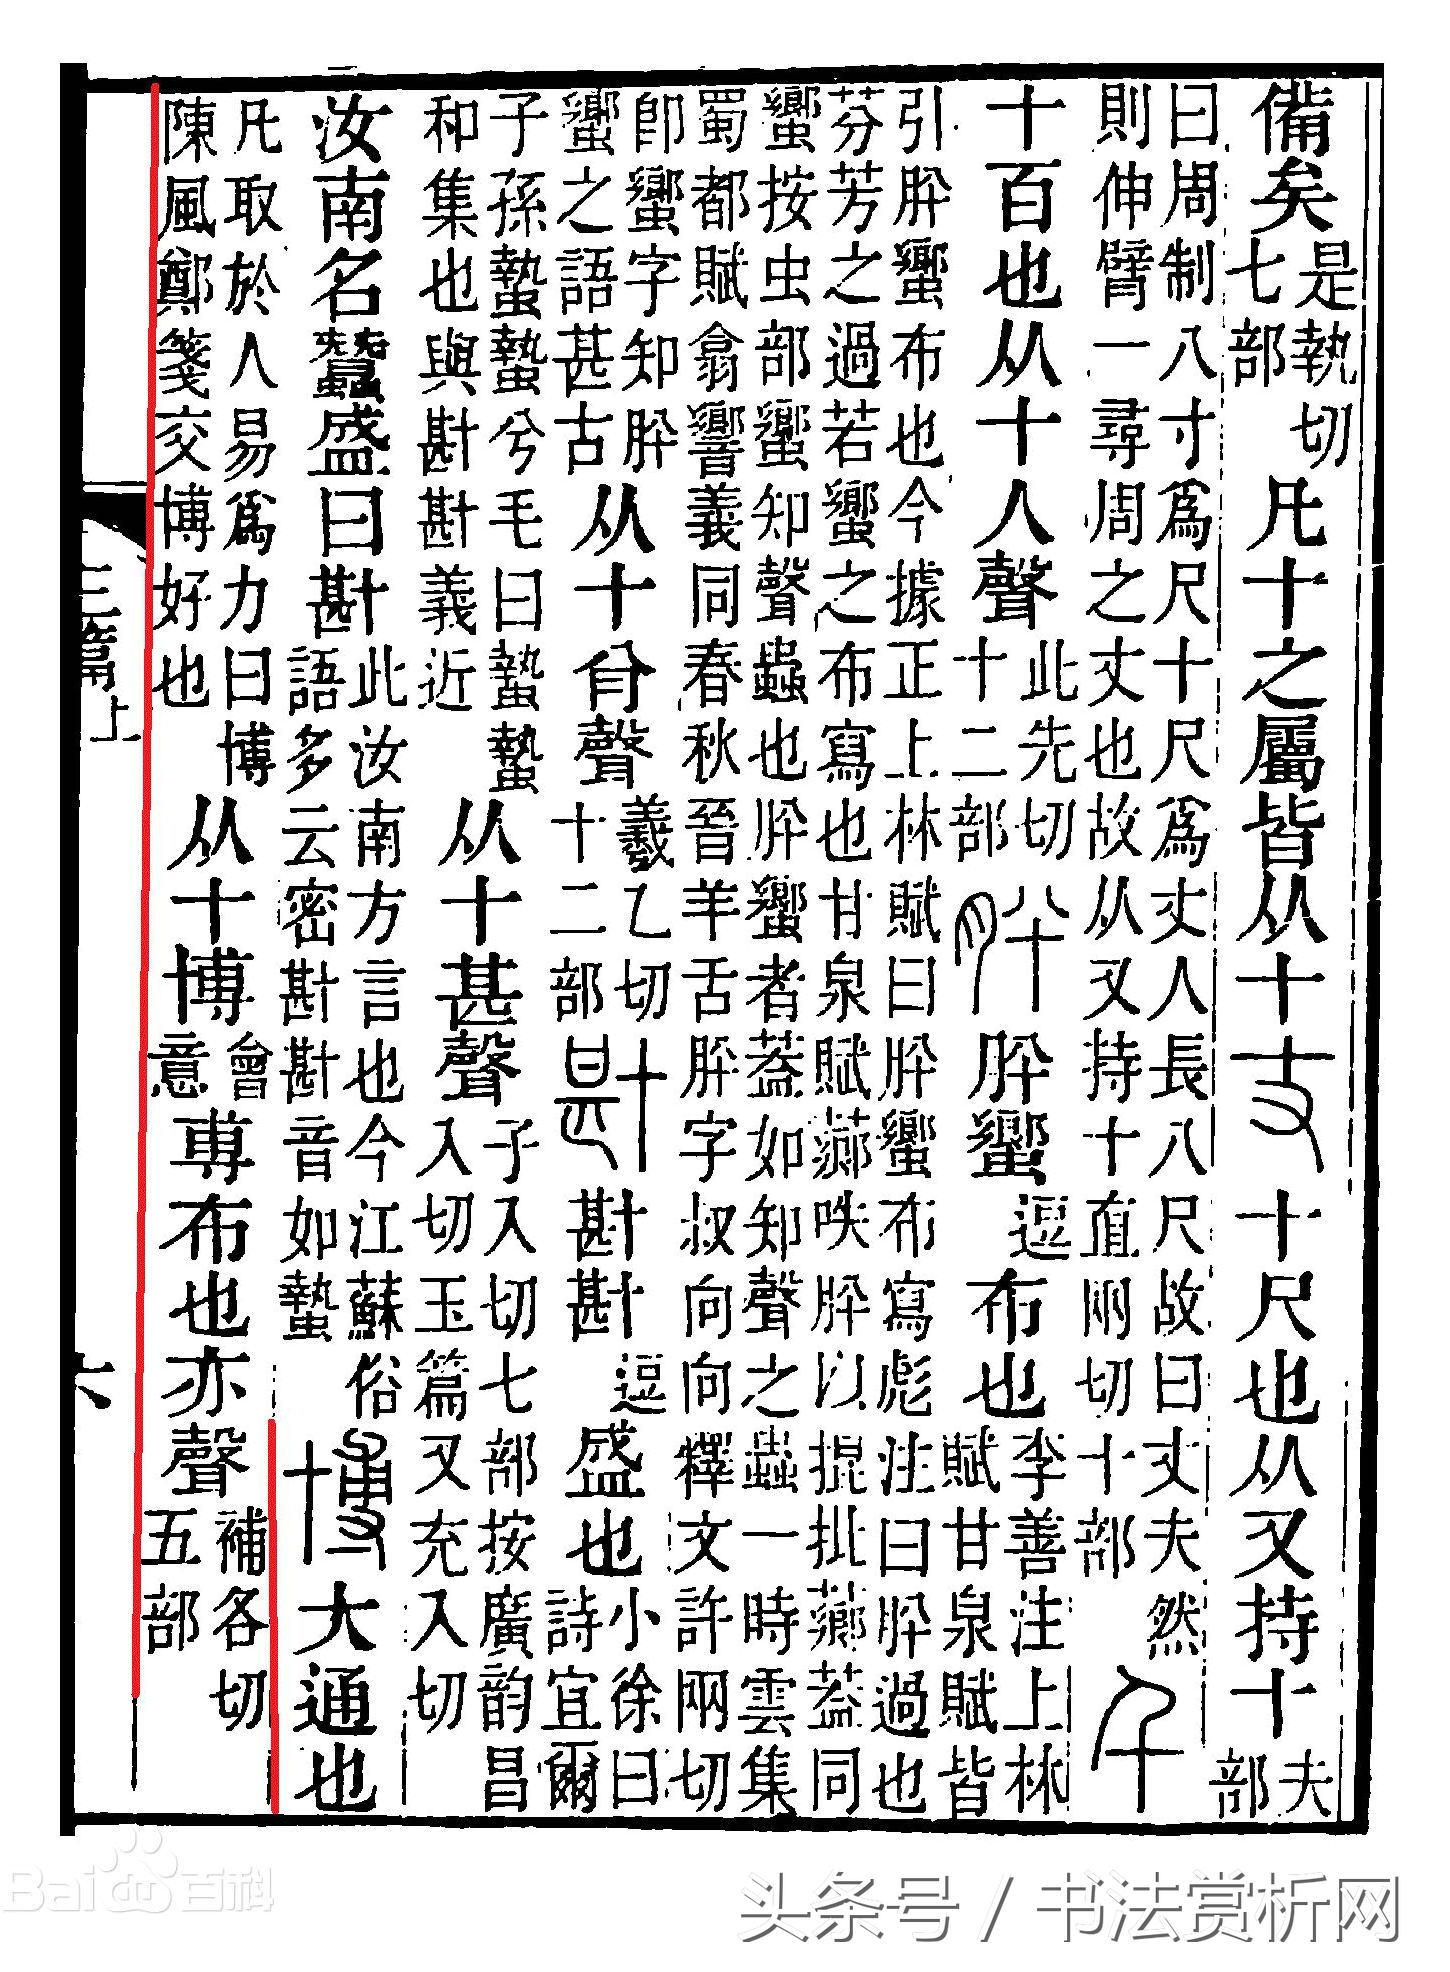 備矣是執切七部凡十之屬皆从十丈十尺也从又持十夫部
曰周制八寸爲尺十尺爲丈人長八尺故曰丈夫然
則伸臂一尋周之丈也故从又持十直兩切十部千
十百也从十人聲此先切十二部肸肸蠁逗布也李善注上林賦甘泉賦皆
引肸蠁布也今據正上林賦曰肸蠁布寫彪注曰肸過也
芬芳之過若蠁之布寫也甘泉賦薌呹肸以掍批薌葢同
蠁按虫部蠁知聲蟲也肸蠁者葢如知聲之蟲一時雲集
蜀都賦翕響義同春秋晉羊舌肸字叔向向釋文許兩切
卽蠁字知肸蠁之語甚古从十䏌聲羲乙切十二部卙卙卙逗盛也小徐曰詩宜爾
子孫蟄蟄兮毛曰蟄蟄和集也與卙卙義近从十甚聲子入切七部按廣韵昌入切玉篇又充入切
汝南名蠶盛曰卙此汝南方言也今江蘇俗語多云密卙卙音如蟄博大通也
凡取於人易爲力曰博陳風鄭箋交博好也从十博會意尃布也亦聲補各切五部
三篇上
六
Baidu百科
头条号 / 书法赏析网